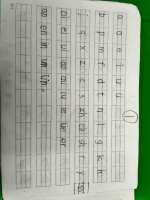 ①
a o e i u ü
b p m f d t n l g k h
j q x z c s zh ch sh r y w
ai ei ui ao ou iu ie üe er
an en in un ün